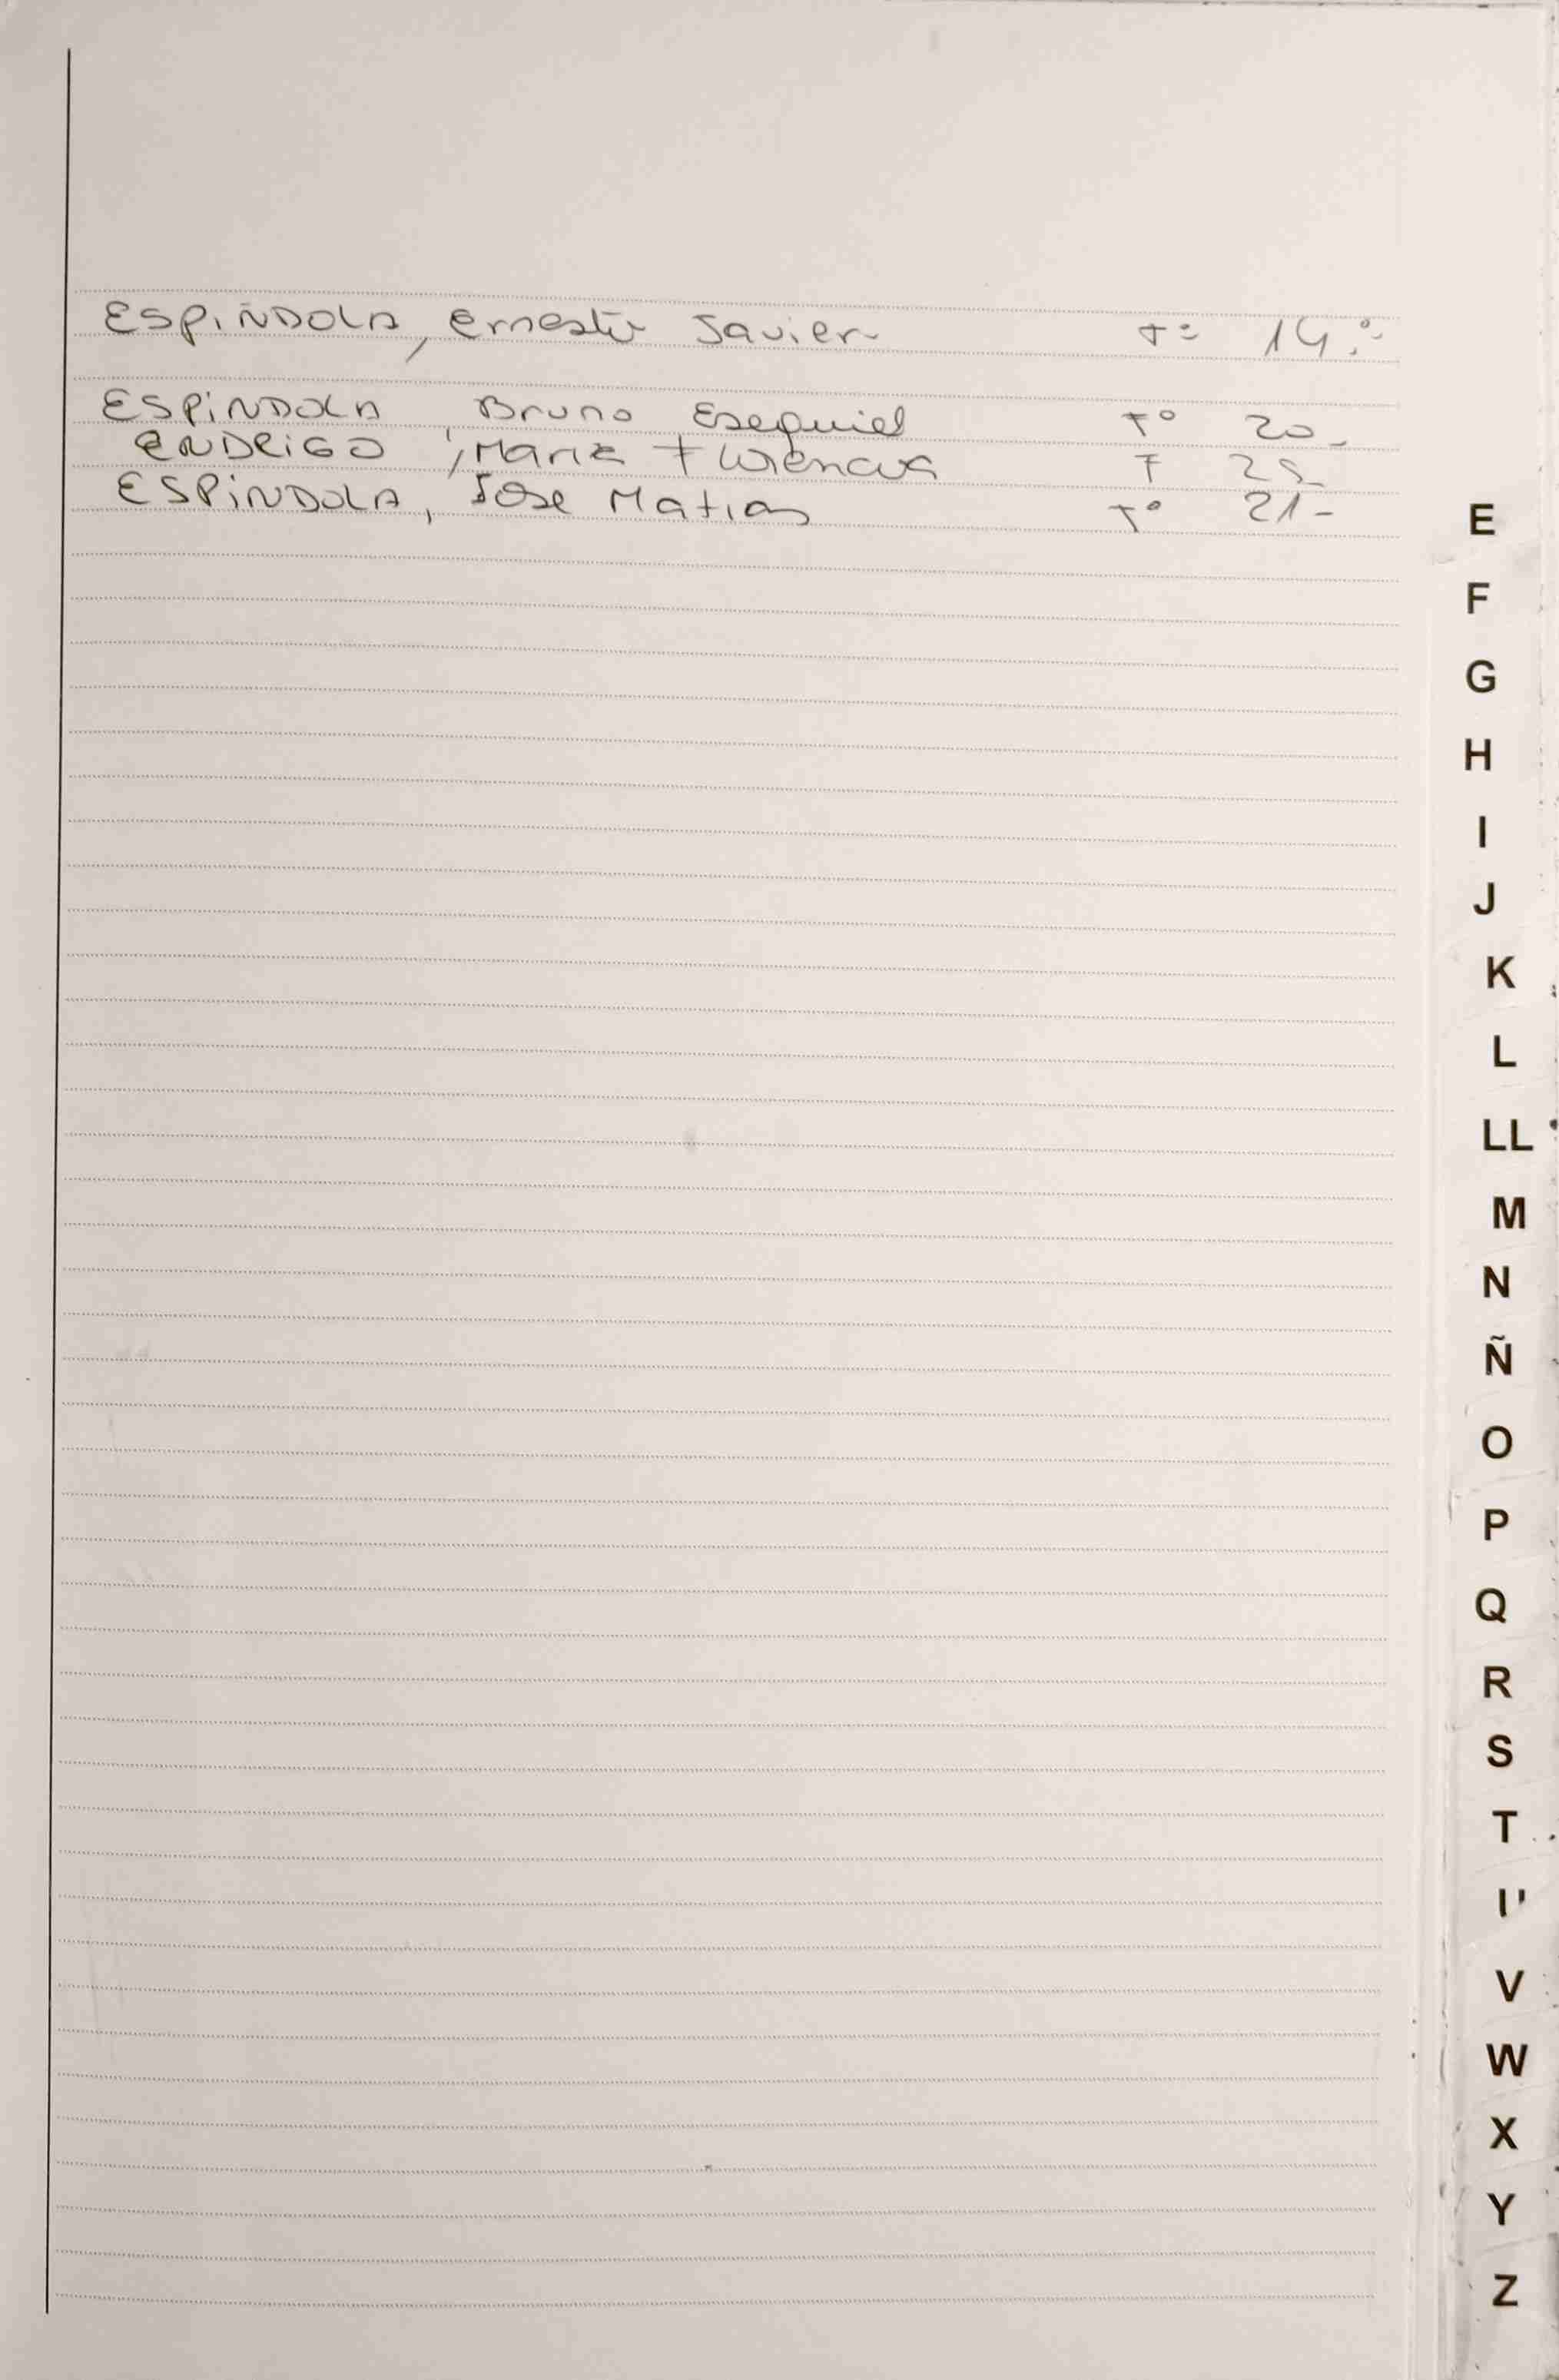 ESPIÑDOLA, Ernesto Javier T= 14.-
ESPINDOLA, Bruno Esequiel Tº 20-
ENDRIGO, Maria Florencia F 25-
ESPINDOLA, Jose Matias Tº 21-
E
F
G
H
I
J
K
L
LL
M
N
Ñ
O
P
Q
R
S
T
U
V
W
X
Y
Z